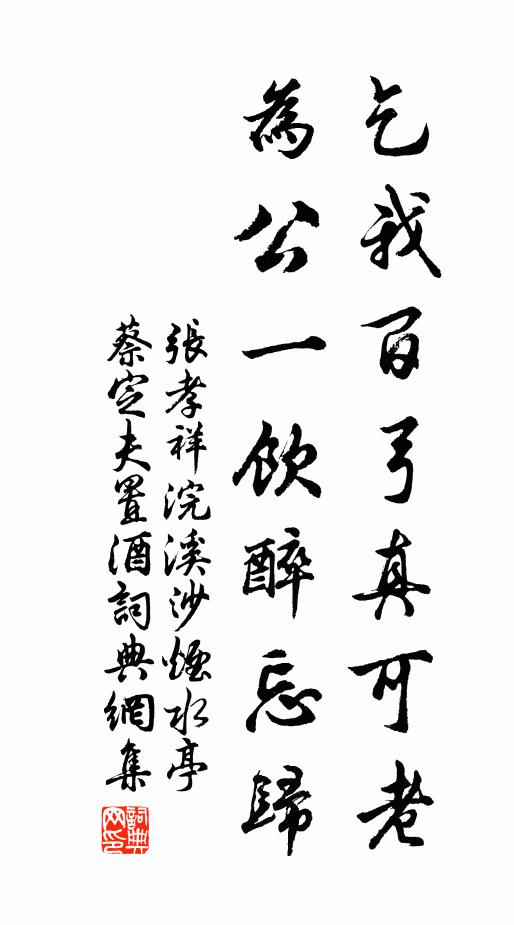 乞我百弓真可老
為公一飲醉忘歸
張孝祥浣溪沙煙水亭
蔡定夫置酒詞典網集
詞典
网印